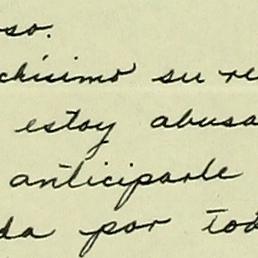 oso.
chísimo su re
estoy abusa
anticiparle
da por tod